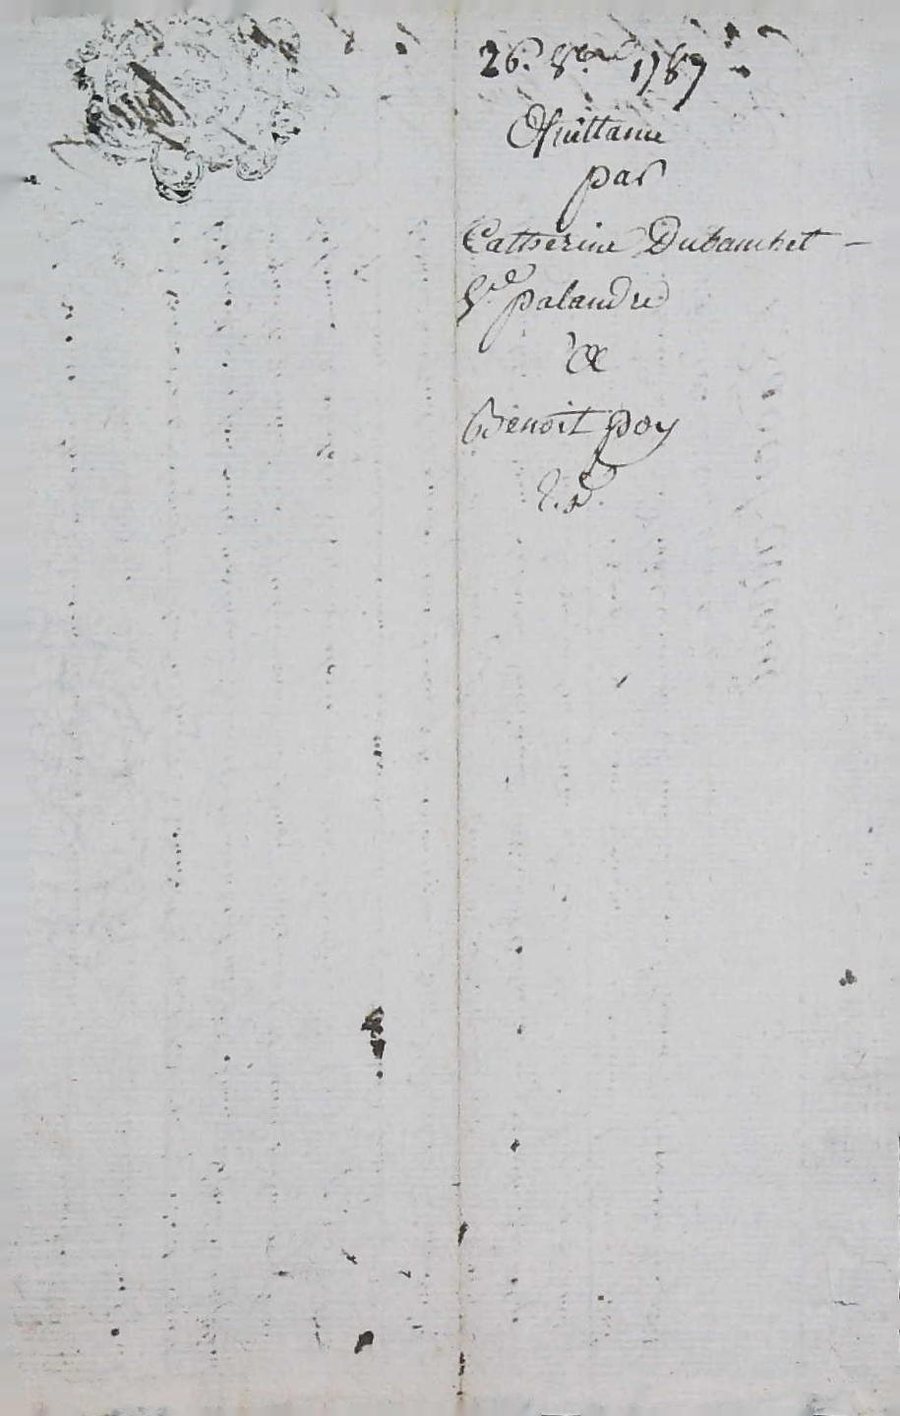 26. 8bre 1789
Quittance
par
Catherine Dubanchet
Ve palandre
&
Benoit poy